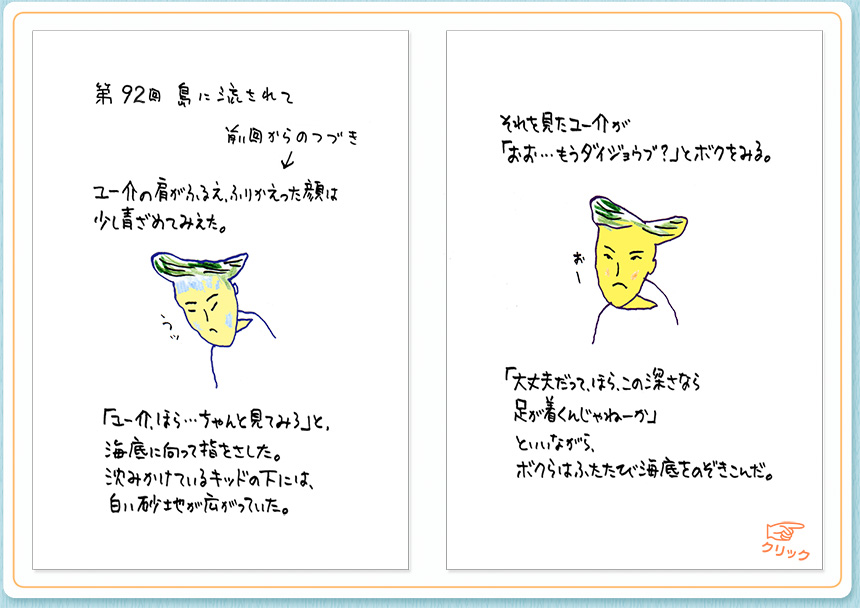 第92回 島に流されて
前回からのつづき
↓
ユー介の肩がふるえ、ふりかえった顔は
少し青ざめてみえた。
うッ
「ユー介、ほら…ちゃんと見てみろ」と、
海底に向って指をさした。
沈みかけているキッドの下には、
白い砂地が広がっていた。
それを見たユー介が
「おお…もうダイジョウブ?」とボクをみる。
おー
「大丈夫だって、ほら、この深さなら
足が着くんじゃねーか」
といいながら、
ボクらはふたたび海底をのぞきこんだ。
クリック